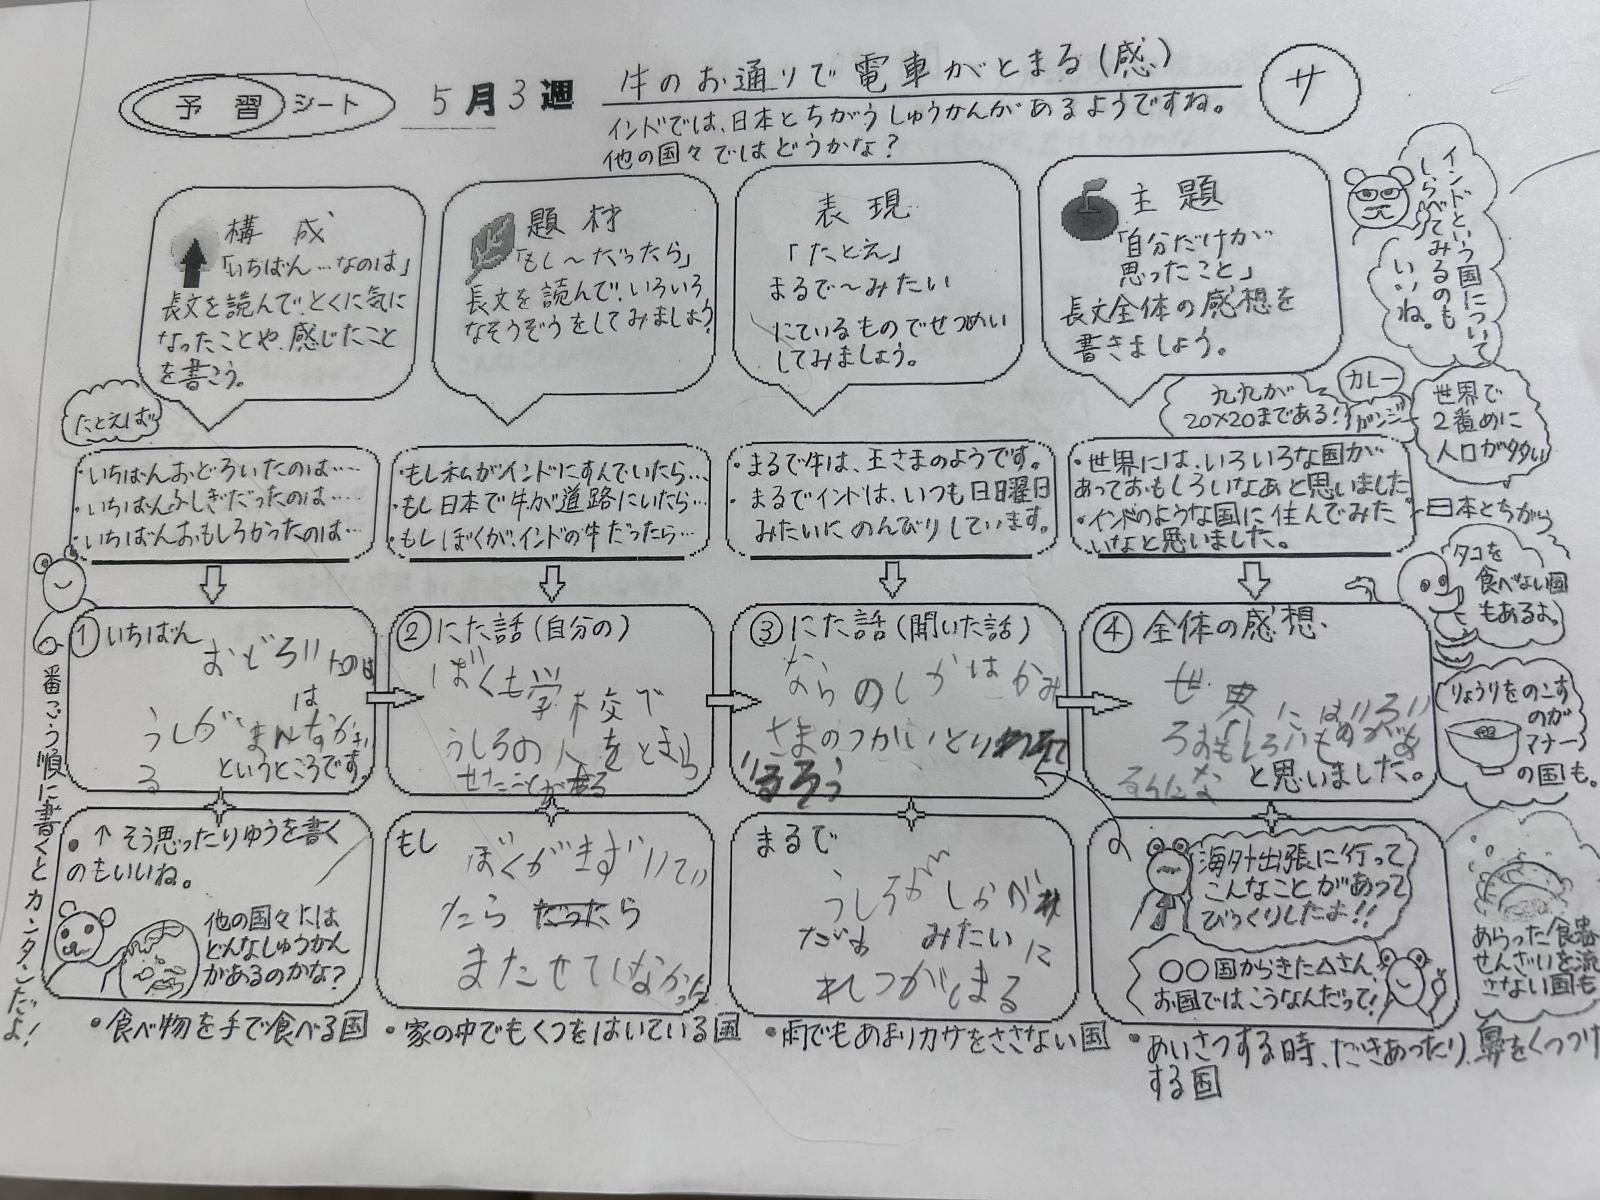 予習シート
5月3週
牛のお通りで電車がとまる(感)
サ
インドでは、日本とちがうしゅうかんがあるようですね。
他の国々ではどうかな？
構成
「いちばん…なのは」
長文を読んで、とくに気に
なったことや、感じたこと
を書こう。
題材
「もし〜だったら」
長文を読んで、いろいろ
なそうぞうをしてみましょう。
表現
「たとえ」
まるで〜みたい
にているものでせつめい
してみましょう。
主題
「自分だけが
思ったこと」
長文全体の感想を
書きましょう。
インドという国について
しらべてみるのも
いいね。
たとえば
・いちばんおどろいたのは……
・いちばんふしぎだったのは……
・いちばんおもしろかったのは…
・もし私がインドにすんでいたら…
・もし日本で牛が道路にいたら…
・もしぼくが、インドの牛だったら…
・まるで牛は、王さまのようです。
・まるでインドは、いつも日曜日
みたいにのんびりしています。
九九が
20×20まである！
カレー
ガンジー
世界で
2番めに
人口が多い
・世界には、いろいろな国が
あっておもしろいなあと思いました。
・インドのような国に住んでみた
いなと思いました。
日本とちがう
タコを
食べない国
もあるよ。
りょうりをのこす
のが
マナー
の国も。
あらった食器
せんざいを流
さない国も
番ごう順に書くとカンタンだよ！
①いちばん
おどろいたのは
は
うしがまんなかにい
る
というところです。
②にた話(自分の)
ぼくも学校で
うしろの人をとまら
せたことがある
③にた話(聞いた話)
ならのしかはかみ
さまのつかいと
④全体の感想
世界にはいろい
ろおもしろいものがあ
るんだな
と思いました。
・↑そう思ったりゆうを書く
のもいいね。
他の国々には
どんなしゅうかん
があるのかな？
もし
ぼくが
たら
またせていなかった
まるで
みたいに
れつがとまる
海外出張に行って
こんなことがあって
びっくりしたよ！！
○○国からきた△さん、
お国ではこうなんだって！
・食べ物を手で食べる国
・家の中でもくつをはいている国
・雨でもあまりカサをささない国
・あいさつする時、だきあったり、鼻をくっつけ
する国